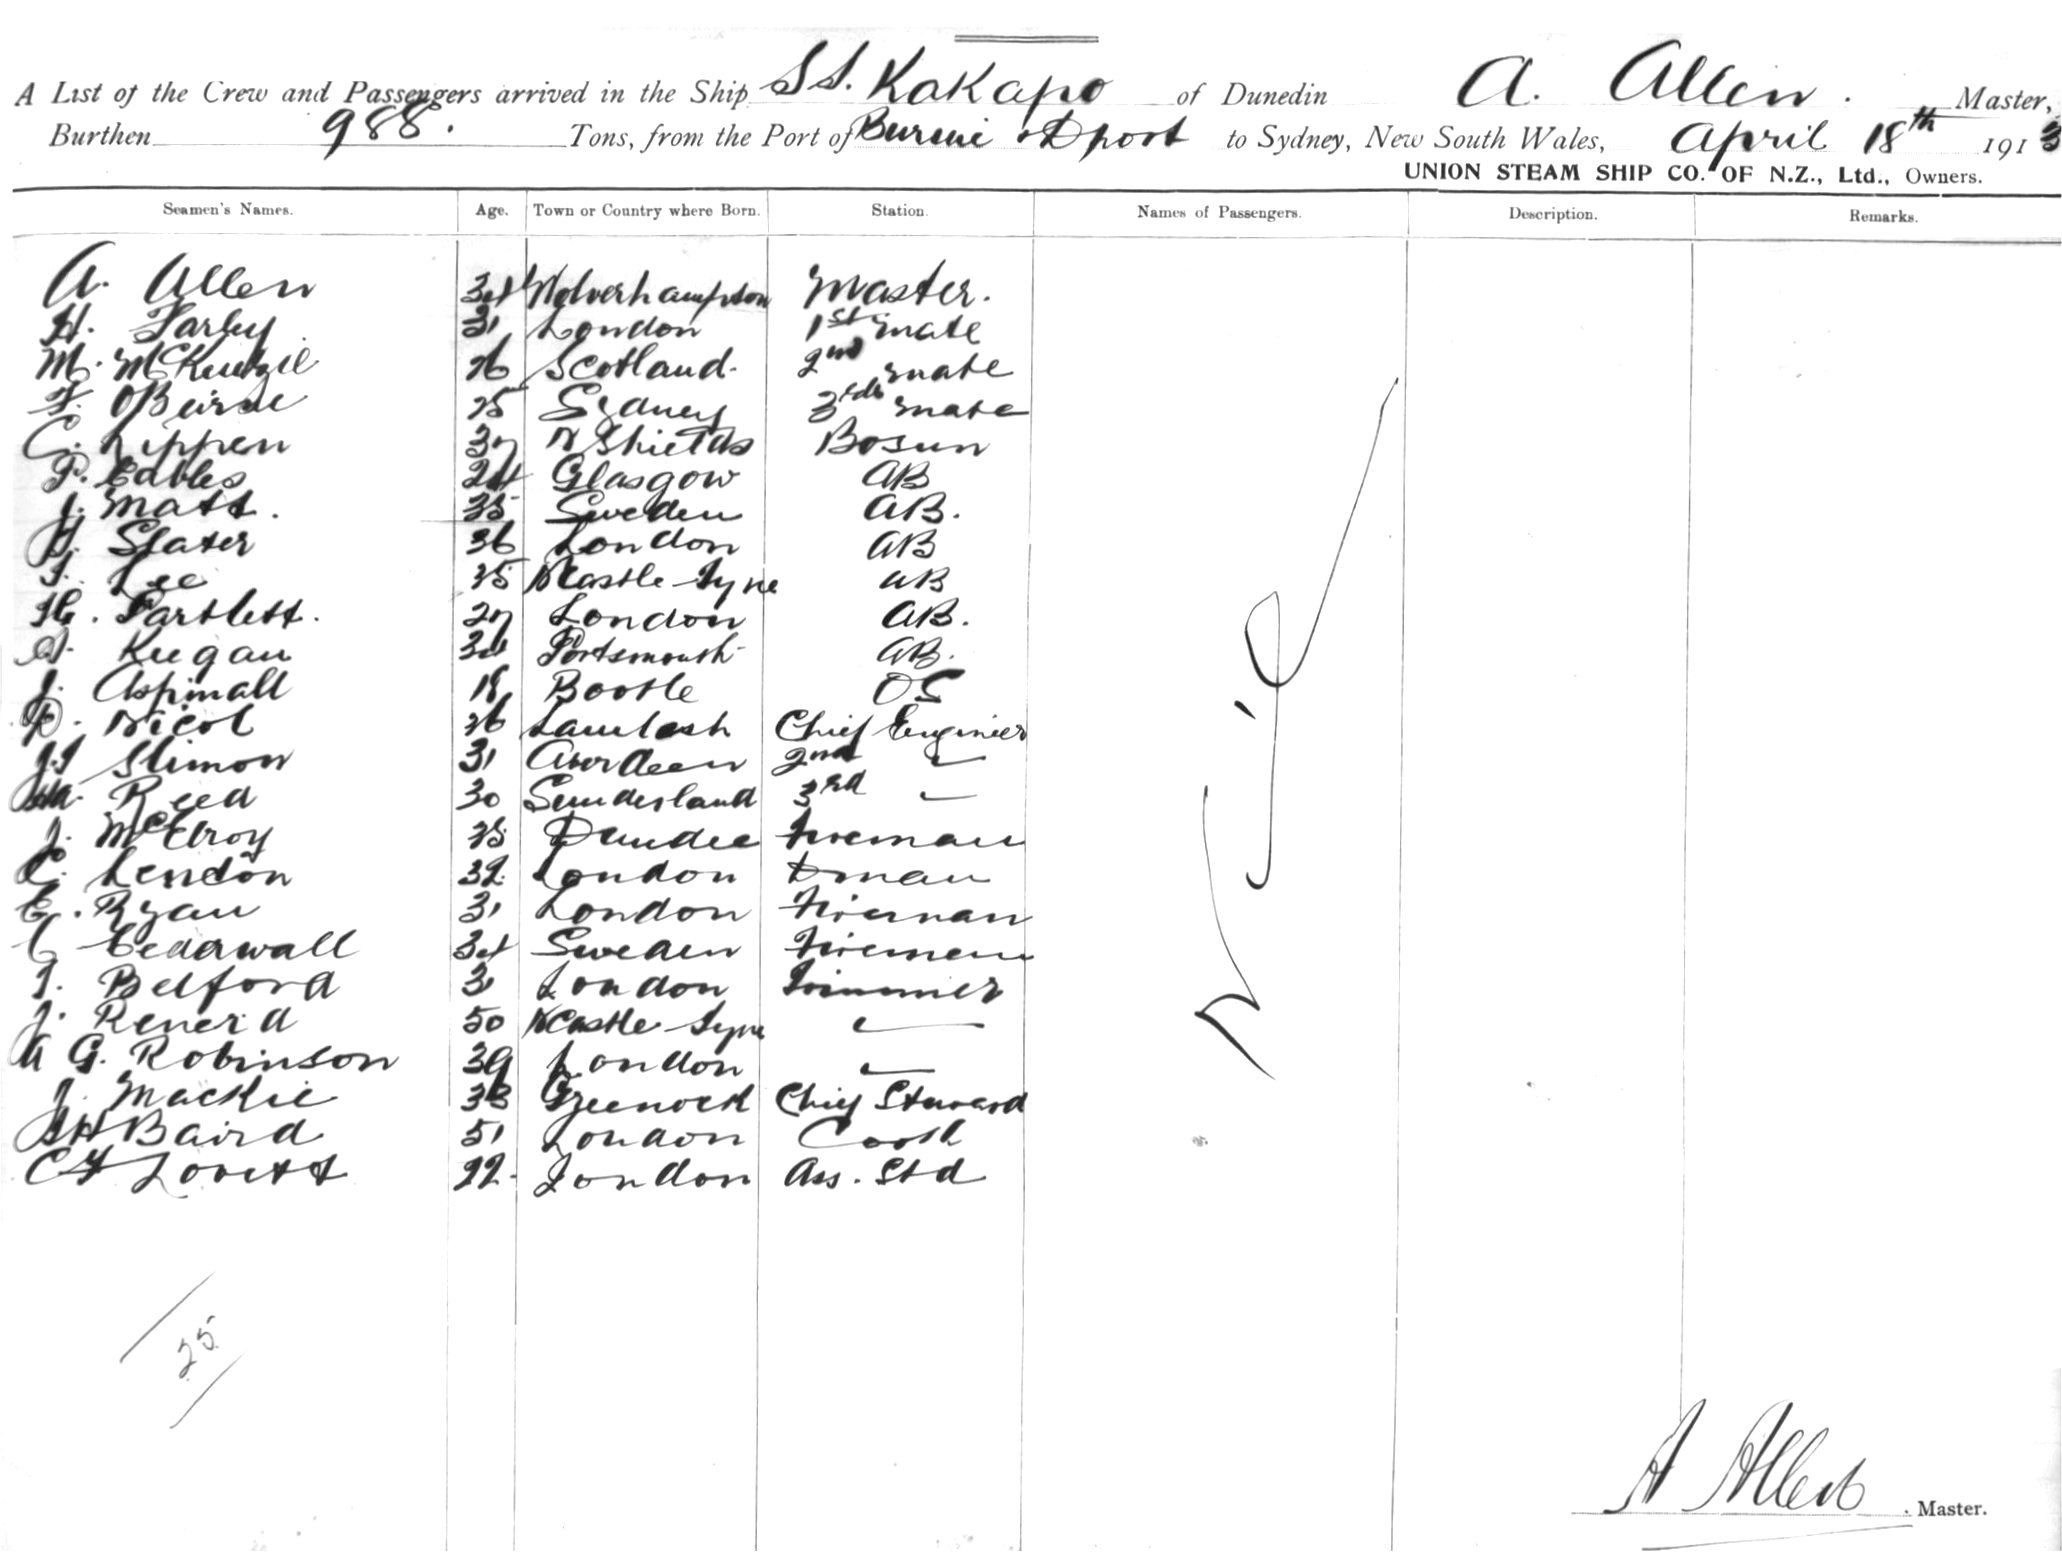 A List of the Crew and Passengers arrived in the Ship SS. Kakapo of Dunedin A. Allen. Master,
Burthen 988. Tons, from the Port of Burnie & Dport to Sydney, New South Wales, April 18th 1913
UNION STEAM SHIP CO. OF N.Z., Ltd., Owners.
Seamen's Names. Age. Town or Country where Born. Station. Names of Passengers. Description. Remarks.
A. Allen 34 Wolverhampton Master.
H. Farley 31 London 1st Mate
M. McKenzie 26 Scotland. 2nd mate
F. OBeirne 25 Sydney 3rd mate
C. Lippen 37 N Shields Bosun
P. Eables 24 Glasgow AB
J. Matt. 35 Sweden AB.
Slater 36 London AB
T. Lee 25 NCastle-Tyne AB
H. Bartlett. 27 London AB.
Keegan 34 Portsmouth AB.
J. Aspinall 18 Bootle OS
D. Nicol 26 Lamlash Chief Engineer
Slimon 31 Aberdeen 2nd "
Reed 30 Sunderland 3rd "
J. McElroy 25 Dundee Fireman
C. Lendon 32. London Dman
E. Ryan 31 London Fireman
C Cedarwall 34 Sweden Fireman
T. Belford 31 London Trimmer
J. Renerd 50 NCastle-Tyne "
A G. Robinson 39 London "
J. Mackie 33 Greenock Chief Steward
Baird 51 London Cook
CF Lovett 22. London Ass. Std
Nil
25
A Allen Master.